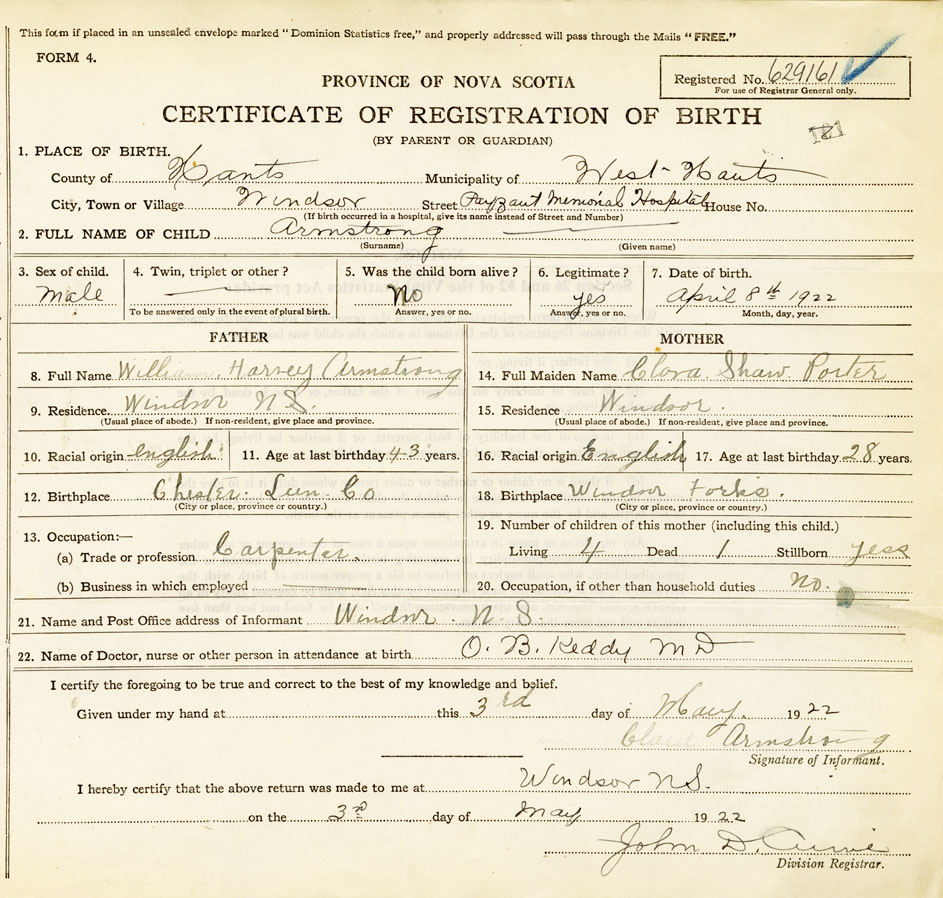 This form if placed in an unsealed envelope marked "Dominion Statistics free," and properly addressed will pass through the Mails "FREE."
FORM 4.
Registered No. 629161
For use of Registrar General only.
PROVINCE OF NOVA SCOTIA
CERTIFICATE OF REGISTRATION OF BIRTH
(BY PARENT OR GUARDIAN)
121
1. PLACE OF BIRTH.
County of Hants Municipality of West Hants
City, Town or Village Windsor Street Payzant Memorial Hospital House No.
(If birth occurred in a hospital, give its name instead of Street and Number)
2. FULL NAME OF CHILD Armstrong
(Surname) (Given name)
3. Sex of child. 4. Twin, triplet or other? 5. Was the child born alive? 6. Legitimate? 7. Date of birth.
Male No yes April 8th 1922
To be answered only in the event of plural birth. Answer, yes or no. Answer, yes or no. Month, day, year.
FATHER
8. Full Name William Harvey Armstrong
9. Residence. Windsor N S.
(Usual place of abode.) If non-resident, give place and province.
10. Racial origin english 11. Age at last birthday 43 years.
12. Birthplace Chester. Lun. Co
(City or place, province or country.)
13. Occupation:—
(a) Trade or profession Carpenter.
(b) Business in which employed
MOTHER
14. Full Maiden Name Clora Shaw Porter
15. Residence Windsor.
(Usual place of abode.) If non-resident, give place and province.
16. Racial origin English 17. Age at last birthday 28 years.
18. Birthplace Windsor Forks.
(City or place, province or country.)
19. Number of children of this mother (including this child.)
Living 4 Dead 1 Stillborn yess
20. Occupation, if other than household duties No.
21. Name and Post Office address of Informant Windsor. N. S.
22. Name of Doctor, nurse or other person in attendance at birth O. B. Keddy M D
I certify the foregoing to be true and correct to the best of my knowledge and belief.
Given under my hand at this 3rd day of May. 1922
Armstrong
Signature of Informant.
I hereby certify that the above return was made to me at Windsor N S.
on the 3rd day of May 1922
John D.
Division Registrar.